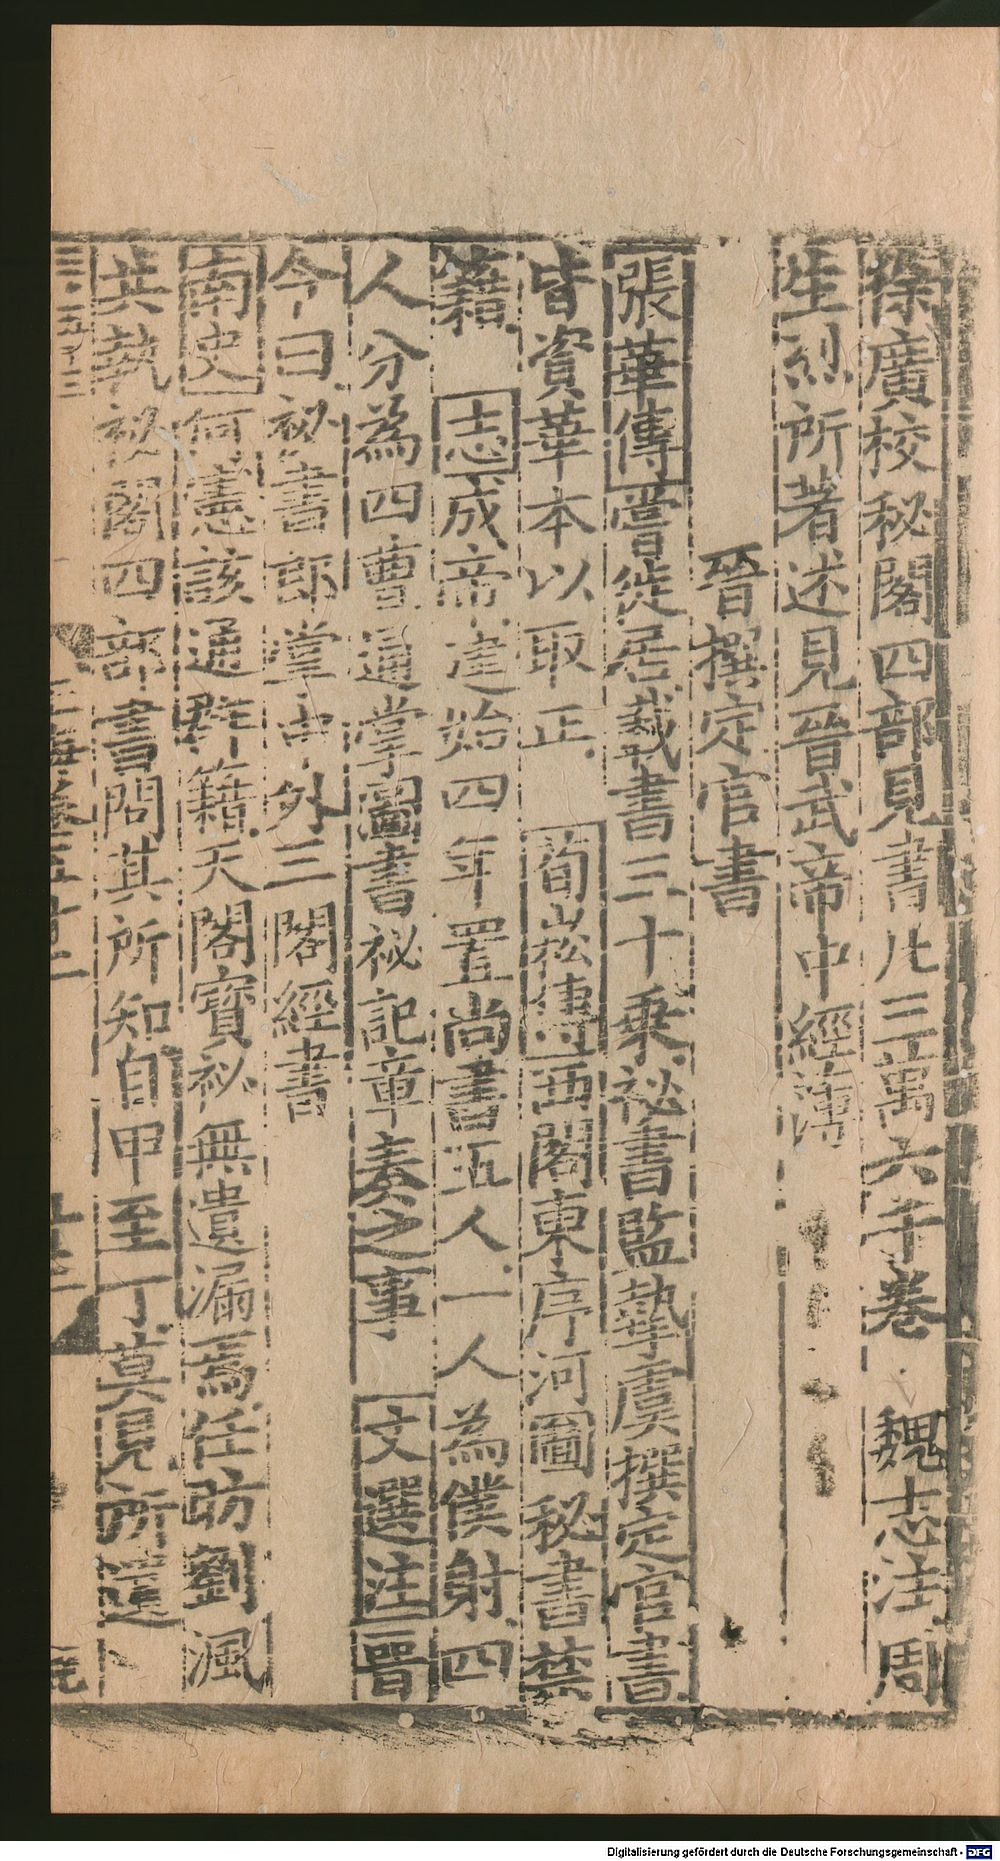 徐廣校秘閣四部見書凡三萬六千卷 魏志注周
生烈所著述見晉武帝中經簿
晉撰定官書
張華傳嘗徙居載書三十乘祕書監摯虞撰定官書
皆資華本以取正 荀崧傳西閣東序河圖秘書禁
籍 志成帝建始四年置尚書五人一人為僕射四
人分為四曹通掌圖書祕記章奏之事 文選注晉
令曰祕書郎掌中外三閣經書
南史何憲該通群籍天閣寶祕無遺漏焉任昉劉渢
共執祕閣四部書問其所知自甲至丁莫見所遺
Digitalisierung gefördert durch die Deutsche Forschungsgemeinschaft - DFG